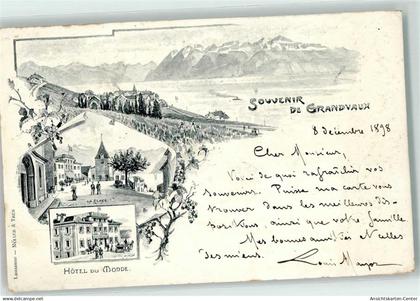 SOUVENIR
DE GRANDVAUX
8 décembre 1898
Cher Monsieur,
Voici de quoi rafraîchir vos
souvenirs. Puisse ma carte vous
trouver dans les meilleures dis-
positions, ainsi que votre famille
Mes bonnes amitiés et celles
des miens.
Louis
LA PLACE
HÔTEL DU MONDE.
Lausanne
www.oldthing.de
www.Ansichtskarten-Center.de